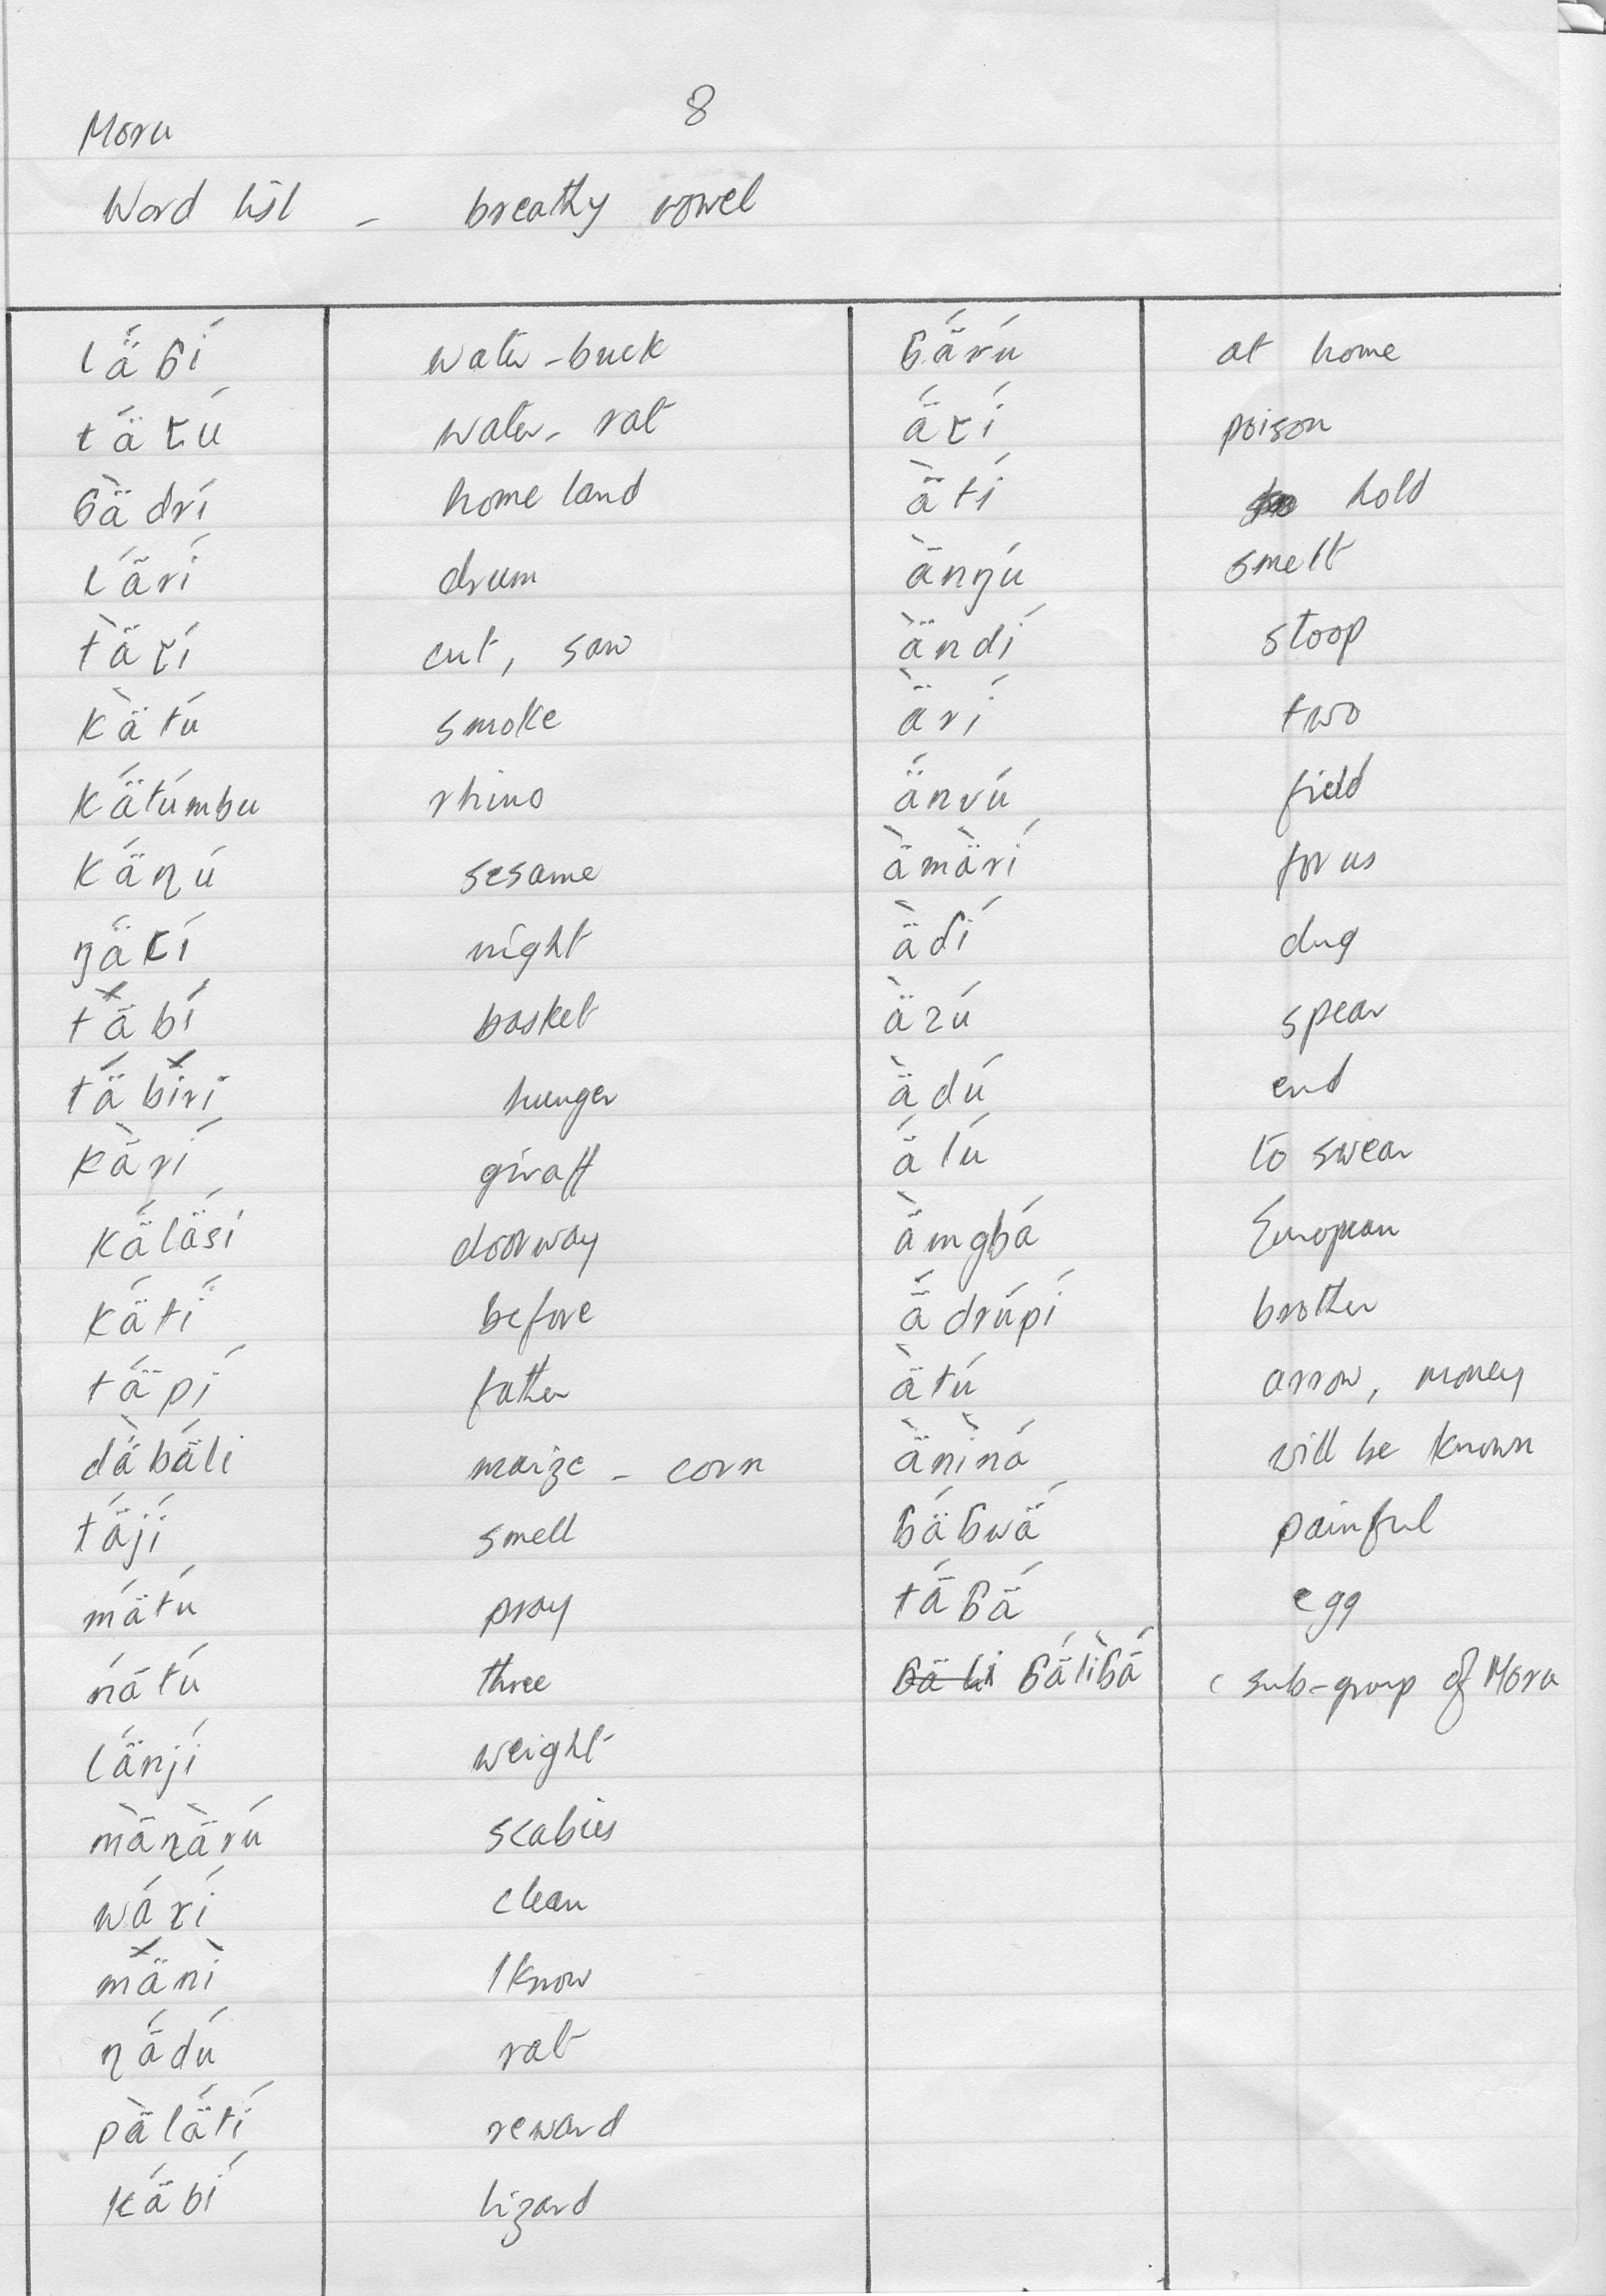 8
Moru
Word list - breathy vowel
lä́ɓí water-buck ɓä́rú at home
tä́ɽú water-rat ä́ɽí poison
ɓä̀drí home land ä̀tí hold
lä́rí drum ä̀nŋú smelt
tä̀ɽí cut, saw ä̀ndí stoop
kä̀tú smoke ä̀rí two
kä́túmbu rhino ä́nvú field
kä́ŋú sesame ä̀mä̀rí for us
ŋä́ɽí night ä̀ɗí dug
tä́bí basket ä̀zú spear
tä́biri hunger ä̀dú end
kä̀rí giraff ä́lú to swear
kä́lä́si doorway ä̀mgbá European
kä́tí before ä́drúpí brother
tä́pí father ä̀tú arrow, money
dä̀bä́li maize - corn ä̀nìná will be known
tä́jí smell ɓä́ɓwä́ painful
mä́tú pray tä́ɓä́ egg
nä́tú three ɓä́lìɓä́ (sub-group of Moru
lä́njí weight
mä̀ŋä̀rú scabies
wárí clean
mänì I know
ŋä́dú rat
pä̀lä́tí reward
kä́bí lizard